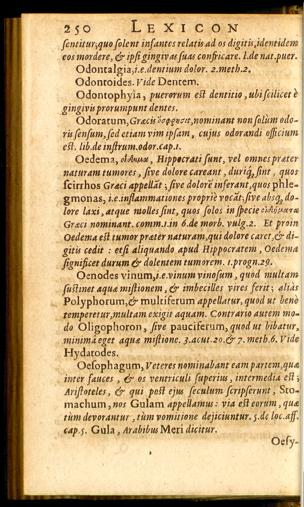 250 LEXICON
sentitur, quo solent infantes relatis ad os digitis, identidem
eos mordere, & ipsi gingivas suas confricare. l. de nat. puer.
Odontalgia, i.e. dentium dolor. 2. meth. 2.
Odontoides. Vide Dentem.
Odontophyia, puerorum est dentitio, ubi scilicet è
gingivis prorumpunt dentes.
Odoratum, Græcis ὄσφρησιν, nominant non solùm odo-
ris sensum, sed etiam vim ipsam, cujus odorandi officium
est. lib. de instrum. odor. cap. 1.
Oedema, οἴδημα, Hippocrati sunt, vel omnes præter
naturam tumores, sive dolore careant, duriq́, sint, quos
scirrhos Græci appellāt; sive dolorē inferant, quos phle-
gmonas, i.e. inflammationes propriè vocāt: sive absq; do-
lore laxi, atque molles sint, quos solos in specie οἰδήματα
Græci nominant. comm. 1. in 6. de morb. vulg. 2. Et proin
Oedema est tumor præter naturam, qui dolore caret, & di-
gitis cedit: etsi aliquando apud Hippocratem, Oedema
significet durum & dolentem tumorem. 1. progn. 29.
Oenodes vinum, i.e. vinum vinosum, quod multam
sustinet aquæ mistionem, & imbecilles vires ferit; aliàs
Polyphorum, & multiferum appellatur, quod ut benè
temperetur, multam exigit aquam. Contrario autem mo-
do Oligophoron, sive pauciferum, quod ut bibatur,
minimà eget aquæ mistione. 3. acut. 20. & 7. meth. 6. Vide
Hydatodes.
Oesophagum, Veteres nominabant eam partem, quæ
inter fauces, & os ventriculi superius, intermedia est;
Aristoteles, & qui post ejus seculum scripserunt, Sto-
machum, nos Gulam appellamus: via est eorum, quæ
tùm devorantur, tùm vomitione dejiciuntur. 5. de loc. aff.
cap. 5. Gula, Arabibus Meri dicitur.
Oesy-